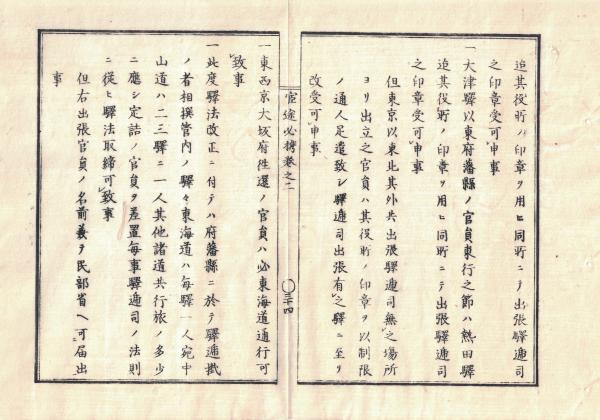 迄其役所ノ印章ヲ用ヒ同所ニテ出張驛逓司
之印章受可申事
一大津驛以東府藩縣ノ官員東行之節ハ熱田驛
迄其役所ノ印章ヲ用ヒ同所ニテ出張驛逓司
之印章受可申事
但東京以東北其外共出張驛逓司無之場所
ヨリ出立之官員ハ其役所ノ印章ヲ以制限
ノ通人足遣致シ驛逓司出張有之驛ニ至リ
改受可申事
官途必携卷之二
〇三十四
一東西京大坂府徃還ノ官員ハ必東海道通行可
致事
一此度驛法改正ニ付テハ府藩縣ニ於テ驛逓掛
ノ者相撰管内ノ驛々東海道ハ每驛一人宛中
山道ハ二三驛ニ一人其他諸道共行旅ノ多少
ニ應シ定詰ノ官員ヲ差置每事驛逓司ノ法則
ニ從ヒ驛法取締可致事
但右出張官員ノ名前義ヲ民部省ヘ可届出
事